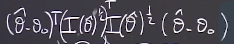 (θ̂-θ₀)ᵀ(I(θ̂)^½)ᵀI(θ̂)^½(θ̂-θ₀)